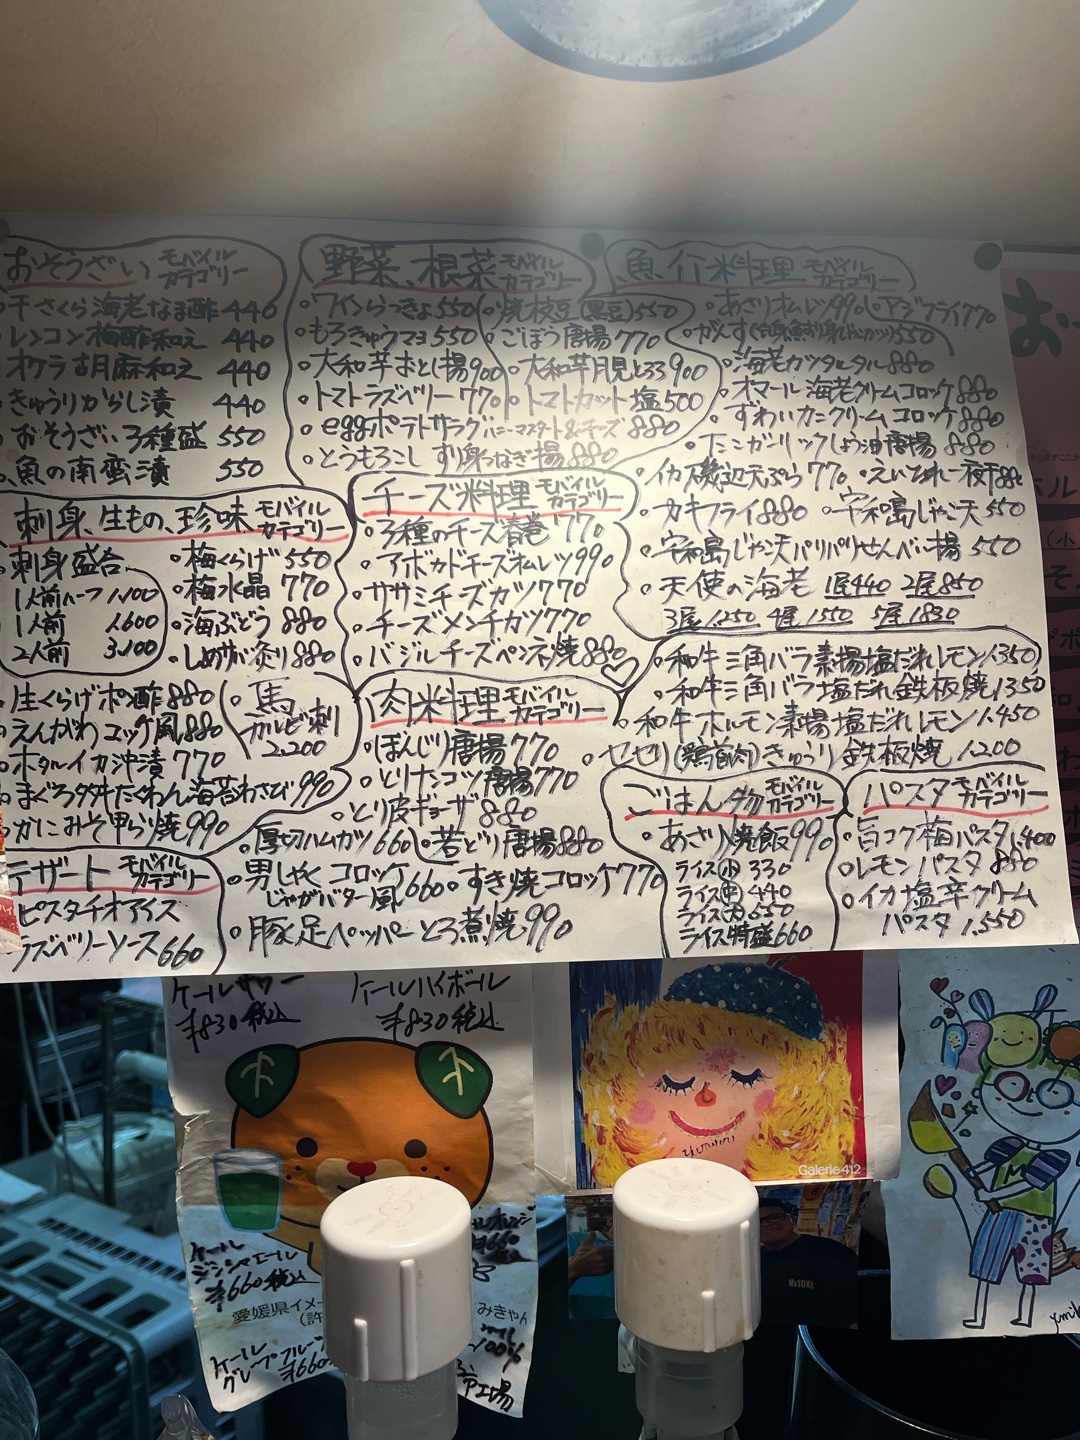 おそうざい モバイルカテゴリー
干さくら海老なます酢 440
レンコン梅酢和え 440
オクラ胡麻和え 440
きゅうりからし漬 440
おそうざい3種盛 550
魚の南蛮漬 550
刺身、生もの、珍味 モバイルカテゴリー
刺身盛合
1人前ハーフ 1,100
1人前 1,600
2人前 3,100
梅くらげ 550
梅水晶 770
海ぶどう 880
しめサバ炙り 880
生くらげポン酢 880
えんがわユッケ風 880
ホタルイカ沖漬 770
まぐろたくわん海苔わさび 990
かにみそ甲ら焼 990
馬カルビ刺
2,200
デザート モバイルカテゴリー
ピスタチオアイス
ラズベリーソース 660
野菜、根菜 モバイルカテゴリー
ワインらっきょ 550
焼枝豆(黒豆) 550
もろきゅうマヨ 550
ごぼう唐揚 770
大和芋おとし揚 900
大和芋月見とろろ 900
トマトラズベリー 770
トマトカット 塩 500
eggポテトサラダ ハニーマスタード&チーズ 880
とうもろこし すり身つなぎ揚 880
チーズ料理 モバイルカテゴリー
3種のチーズ春巻 770
アボカドチーズオムレツ 990
ササミチーズカツ 770
チーズメンチカツ 770
バジルチーズペンネ焼 880
肉料理 モバイルカテゴリー
ぼんじり唐揚 770
とりナンコツ唐揚 770
とり皮ギョーザ 880
厚切ハムカツ 660
若どり唐揚 880
男しゃくコロッケ
じゃがバター風 660
すき焼コロッケ 770
豚足ペッパーとろ煮焼 990
和牛三角バラ素揚塩だれレモン 1,350
和牛三角バラ塩だれ鉄板焼 1,350
和牛ホルモン素揚塩だれレモン 1,450
セセリ(鶏首肉)きゅうり鉄板焼 1,200
魚介料理 モバイルカテゴリー
あさりオムレツ 990
アジフライ 770
がんす 550
海老カツタルタル 880
オマール海老クリームコロッケ 880
ずわいカニクリームコロッケ 880
たこガーリックしょう油唐揚 880
イカ磯辺天ぷら 770
えいひれ一夜干 880
カキフライ 880
宇和島じゃこ天 550
宇和島じゃこ天パリパリせんべい揚 550
天使の海老 1尾440 2尾850
3尾1,250 4尾1,550 5尾1,830
ごはん物 モバイルカテゴリー
あさり焼飯 990
ライス(小) 330
ライス(中) 440
ライス(大) 550
ライス特盛 660
パスタ モバイルカテゴリー
旨コク梅パスタ 1,400
レモンパスタ 880
イカ塩辛クリーム
パスタ 1,550
ケールサワー
¥830税込
ケールハイボール
¥830税込
ケール
ジンジャエール
¥660税込
愛媛県イメ
(許
みきゃん
ケール
グレープフルーツ
¥660
工場
Galerie 412